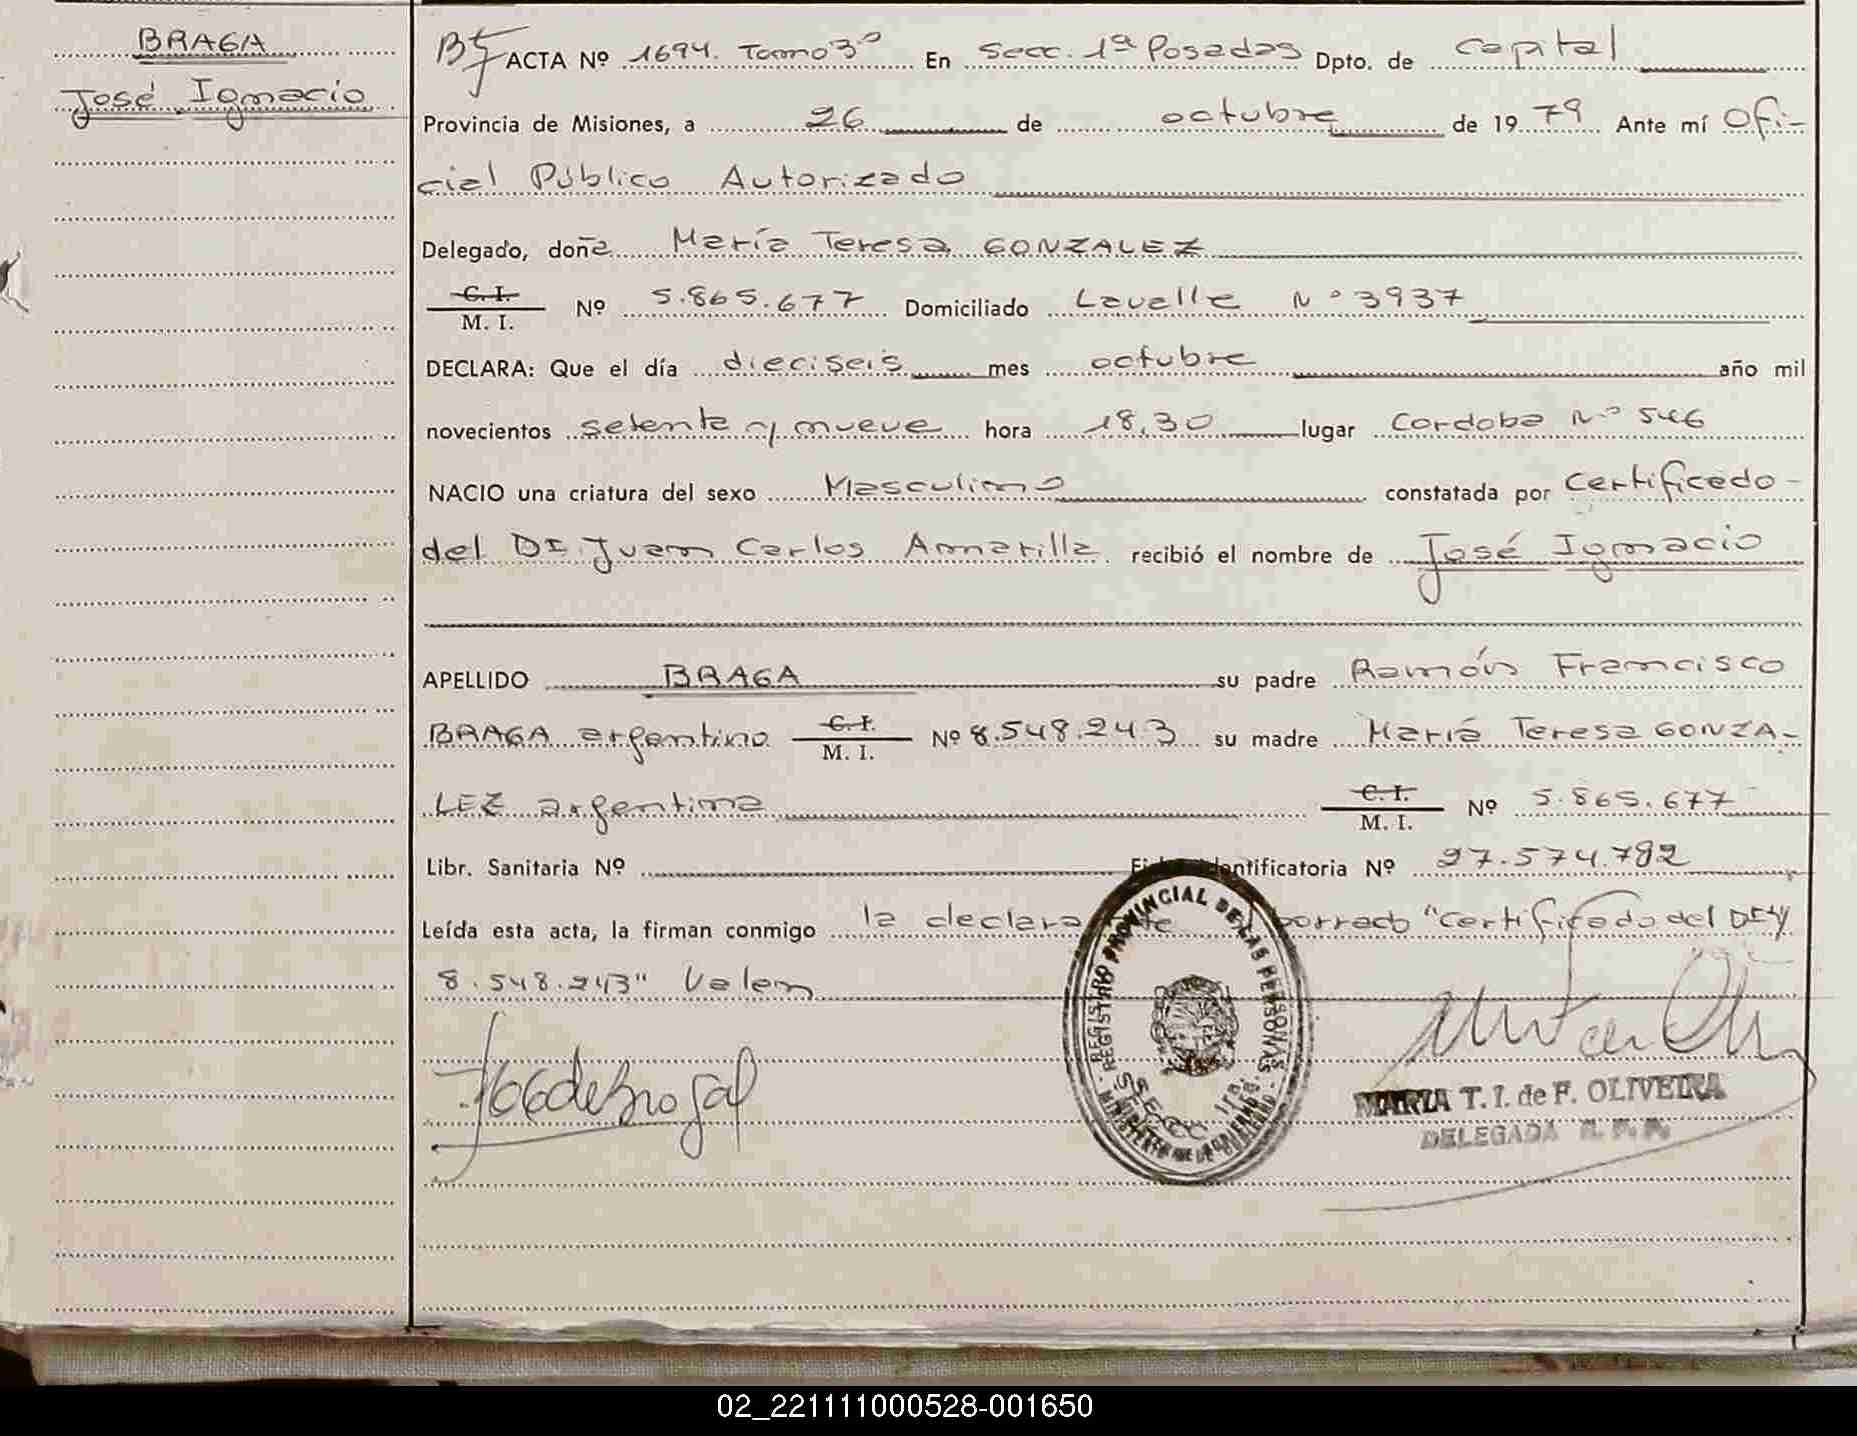 BRAGA
José Ignacio
ACTA Nº 1694. Tomo 3º En Secc. 1ª Posadas Dpto. de Capital
Provincia de Misiones, a 26 de octubre de 1979 Ante mí Ofi-
cial Público Autorizado
Delegado, doña María Teresa GONZALEZ
C. I.
M. I. Nº 5.865.677 Domiciliado Lavalle Nº 3937
DECLARA: Que el día dieciseis mes octubre año mil
novecientos setenta y nueve hora 18,30 lugar Cordoba Nº 546
NACIO una criatura del sexo Masculino constatada por Certificado
del Dr. Juan Carlos Amarilla recibió el nombre de José Ignacio
APELLIDO BRAGA su padre Ramón Francisco
BRAGA argentino C. I. M. I. Nº 8.548.243 su madre María Teresa GONZA-
LEZ argentina C. I. M. I. Nº 5.865.677
Libr. Sanitaria Nº Ficha Identificatoria Nº 27.574.782
Leída esta acta, la firman conmigo la declarante borrado "Certificado del Dr y
8.548.243" Valen
REGISTRO PROVINCIAL DE LAS PERSONAS
SECC. 1ra.
MINISTERIO DE GOBIERNO
MARIA T. I. de F. OLIVEIRA
DELEGADA R. P. P.
02_221111000528-001650